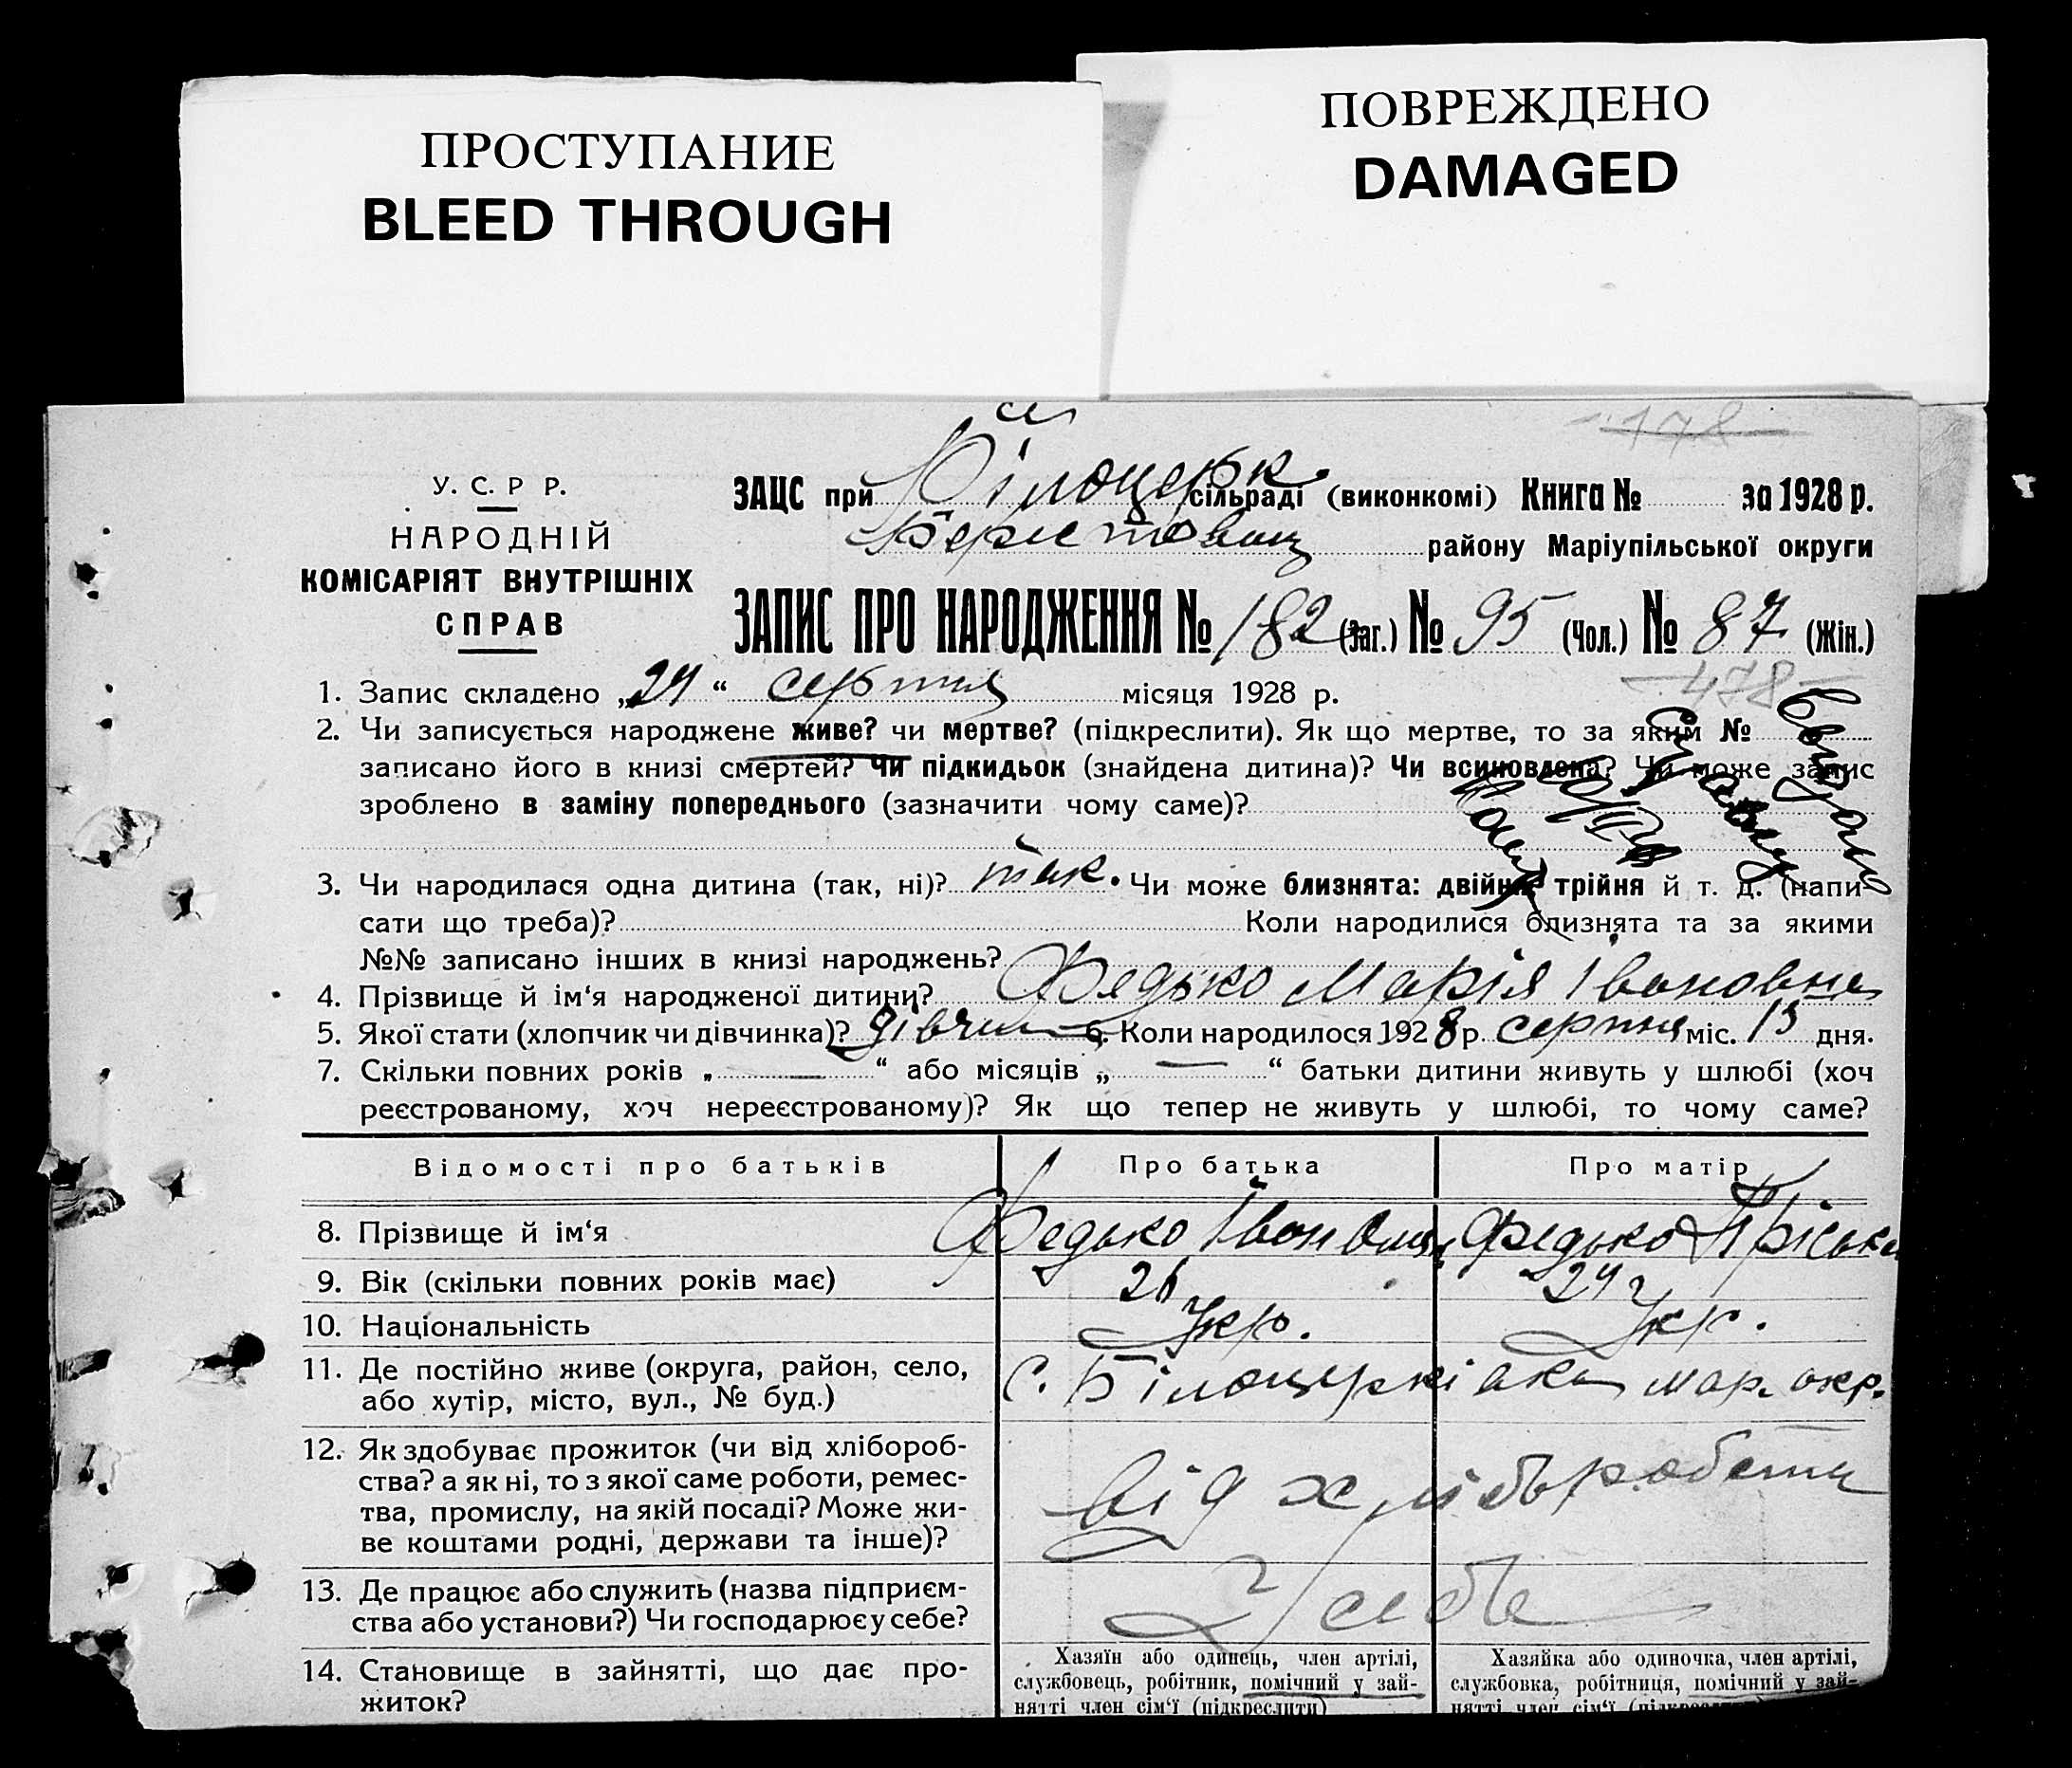 ПРОСТУПАНИЕ
BLEED THROUGH
ПОВРЕЖДЕНО
DAMAGED
178
У. С. Р Р.
НАРОДНІЙ
КОМІСАРІЯТ ВНУТРІШНІХ
СПРАВ
ЗАЦС при Білоцерк. сільраді (виконкомі) Книга № за 1928 р.
районy Маріупільської округи
ЗАПИС ПРО НАРОДЖЕННЯ № 182 (Заг.) № 95 (Чол.) № 87 (Жін.)
478
1. Запис складено „24“ серпня місяця 1928 р.
2. Чи записується народжене живе? чи мертве? (підкреслити). Як що мертве, то за яким №
записано його в книзі смертей? Чи підкидьок (знайдена дитина)? Чи всиновлена? Чи може запис
зроблено в заміну попереднього (зазначити чому саме)?
3. Чи народилася одна дитина (так, ні)? так. Чи може близнята: двійня, трійня й т. д. (напи-
сати що треба)? Коли народилися близнята та за якими
№№ записано інших в книзі народжень?
4. Прізвище й ім‘я народженої дитини? Федько Марія Івановна
5. Якої стати (хлопчик чи дівчинка)? дівчин 6. Коли народилося 1928 р. серпня міс. 13 дня.
7. Скільки повних років „ — “ або місяців „ — “ батьки дитини живуть у шлюбі (хоч
реєстрованому, хоч нереєстрованому)? Як що тепер не живуть у шлюбі, то чому саме?
Відомості про батьків Про батька Про матір
8. Прізвище й ім‘я Федько Іван Федько Пріська
9. Вік (скільки повних років має) 26 24
10. Національність Укр. Укр.
11. Де постійно живе (округа, район, село,
або хутір, місто, вул., № буд.)
с. Білоцерківка мар. окр.
12. Як здобуває прожиток (чи від хлібороб-
ства? а як ні, то з якої саме роботи, ремес-
тва, промислу, на якій посаді? Може жи-
ве коштами родні, держави та інше)?
від хліборобства
13. Де працює або служить (назва підприєм-
ства або установи?) Чи господарює у себе?
У себе
14. Становище в зайнятті, що дає про-
житок?
Хазяїн або одинець, член артілі,
службовець, робітник, помічний у зай-
нятті член сім‘ї (підкреслити)
Хазяйка або одиночка, член артілі,
службовка, робітниця, помічний у зай-
нятті член сім‘ї